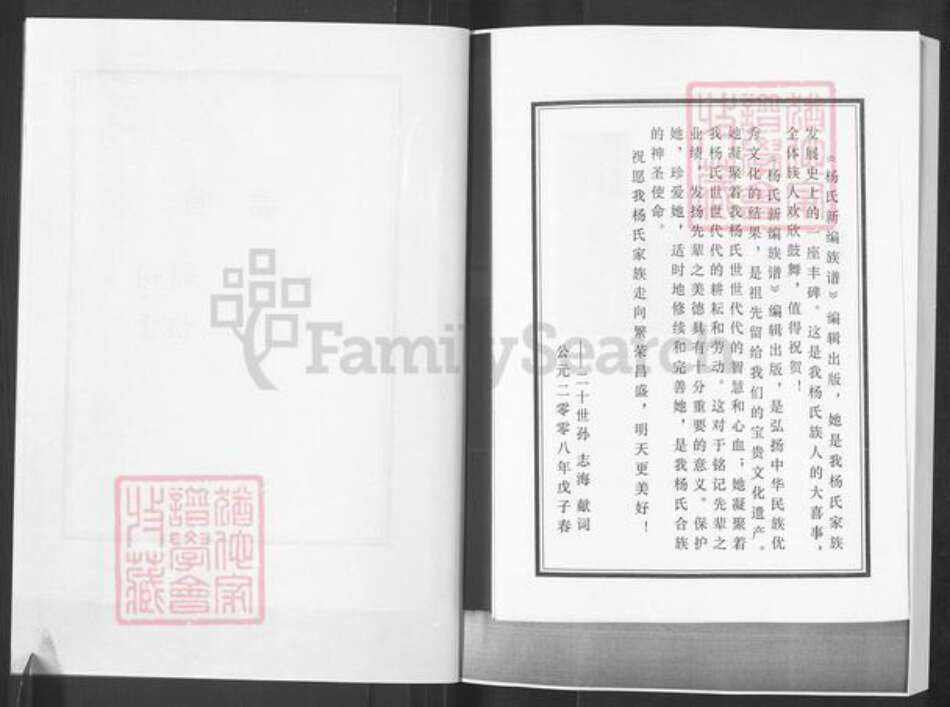 《杨氏新编族谱》编辑出版，她是我杨氏家族
发展史上的一座丰碑。这是我杨氏族人的大喜事，
全体族人欢欣鼓舞，值得祝贺！
《杨氏新编族谱》编辑出版，是弘扬中华民族优
秀文化的结果，是祖先留给我们的宝贵文化遗产。
她凝聚着我杨氏世世代代的智慧和心血；她凝聚着
我杨氏世世代代的耕耘和劳动。这对于铭记先辈之
业绩，发扬先辈之美德具有十分重要的意义。保护
她，珍爱她，适时地修续和完善她，是我杨氏合族
的神圣使命。
祝愿我杨氏家族走向繁荣昌盛，明天更美好！
二十世孙 志海 献词
公元二零零八年戊子春
FamilySearch
猶他家
譜學會
收藏
猶他家
譜學會
收藏